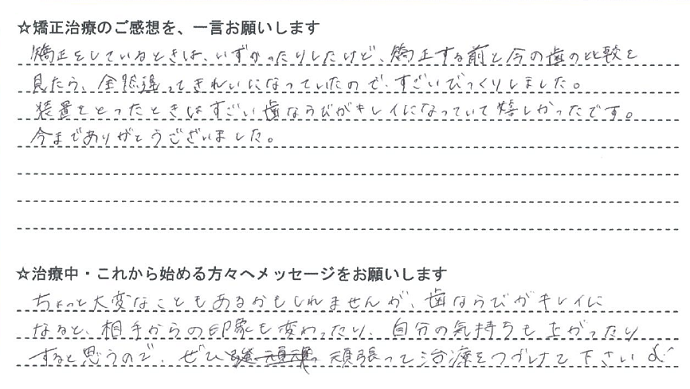 ☆矯正治療のご感想を、一言お願いします
矯正をしているときは、いずかったりしたけど、矯正する前と今の歯の比較を
見たら、全然違ってきれいになっていたので、すごいびっくりしました。
装置をとったときはすごい歯ならびがキレイになっていて嬉しかったです。
今までありがとうございました。
☆治療中・これから始める方々へメッセージをお願いします
ちょっと大変なこともあるかもしれませんが、歯ならびがキレイに
なると、相手からの印象も変わったり、自分の気持ちも上がったり
すると思うので、ぜひ 頑張って治療をつづけて下さい